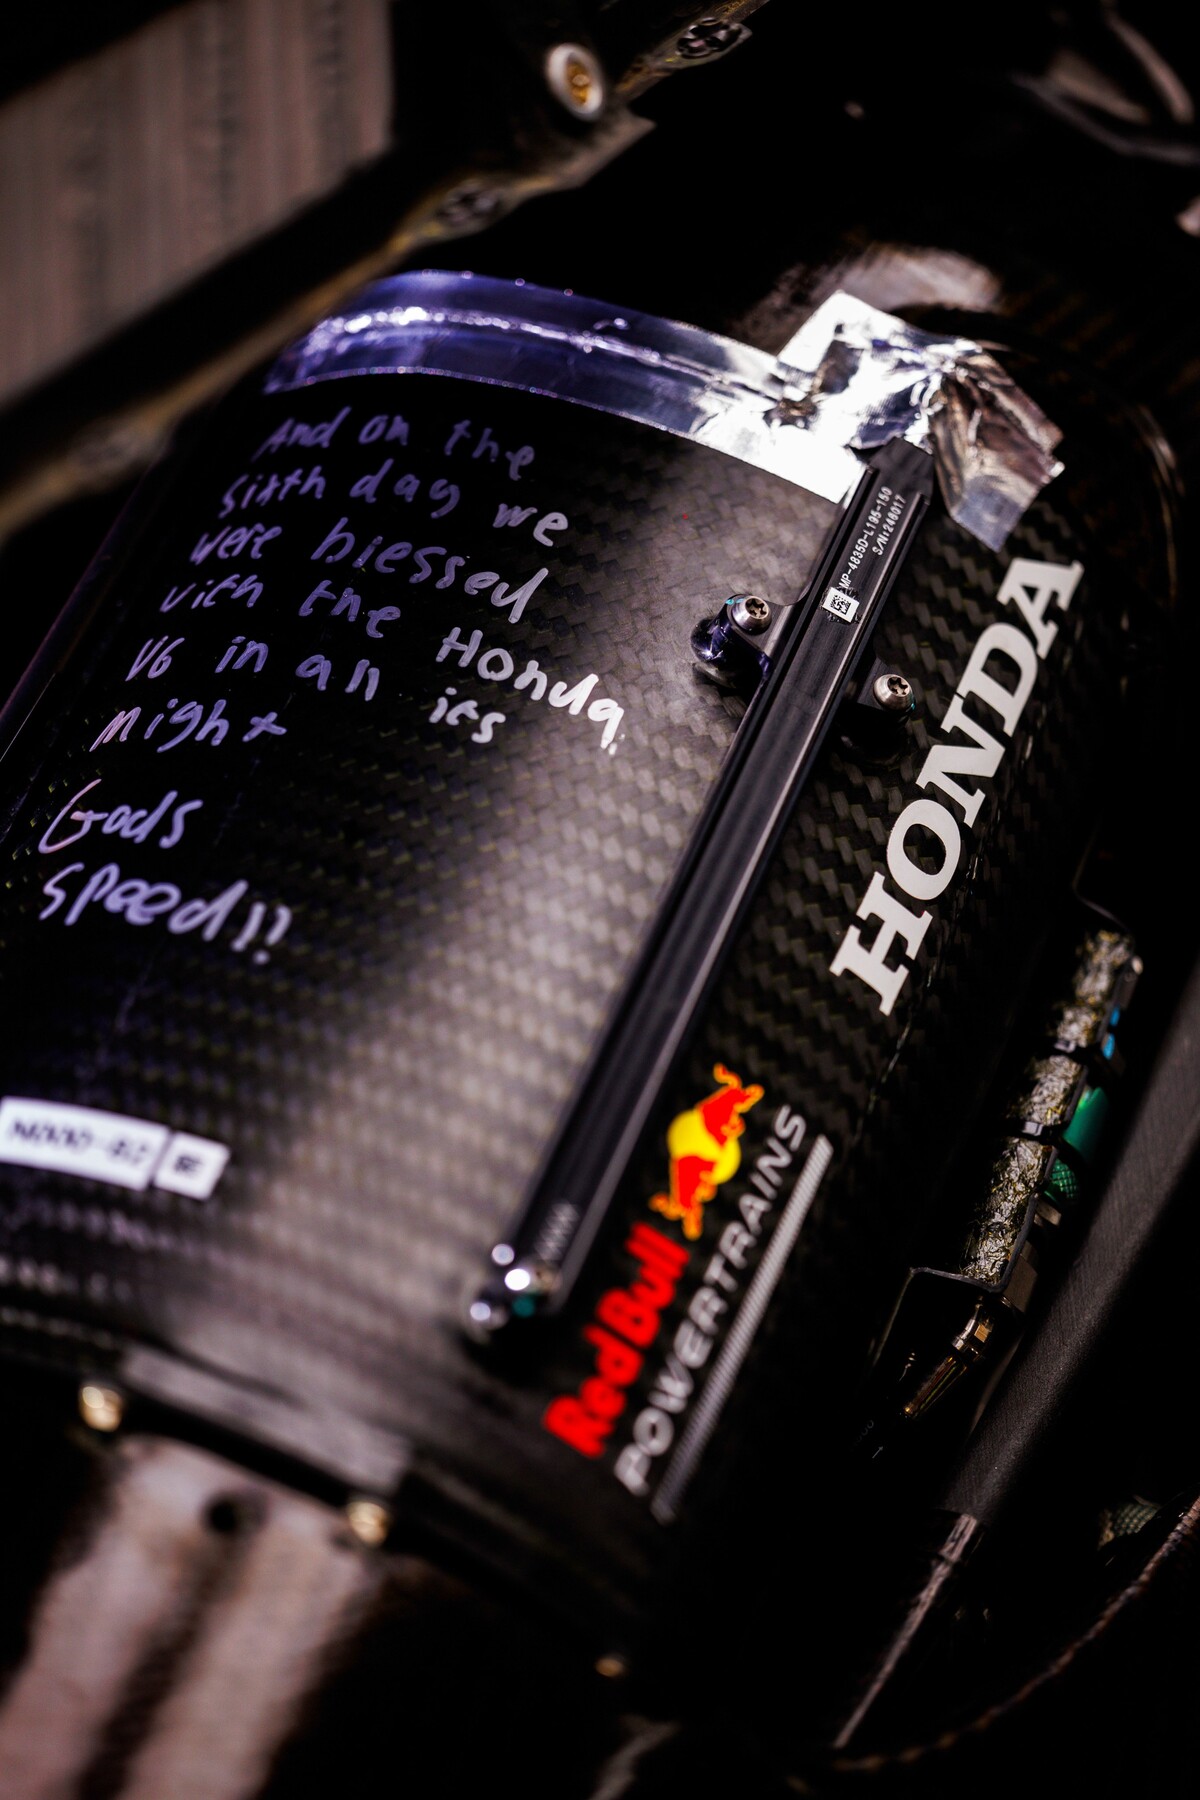 And on the
sixth day we
were blessed
with the Honda
V6 in all its
might
Gods
speed!!
MP-4835D-L195-150
S/N:246017
HONDA
Red Bull
POWERTRAINS